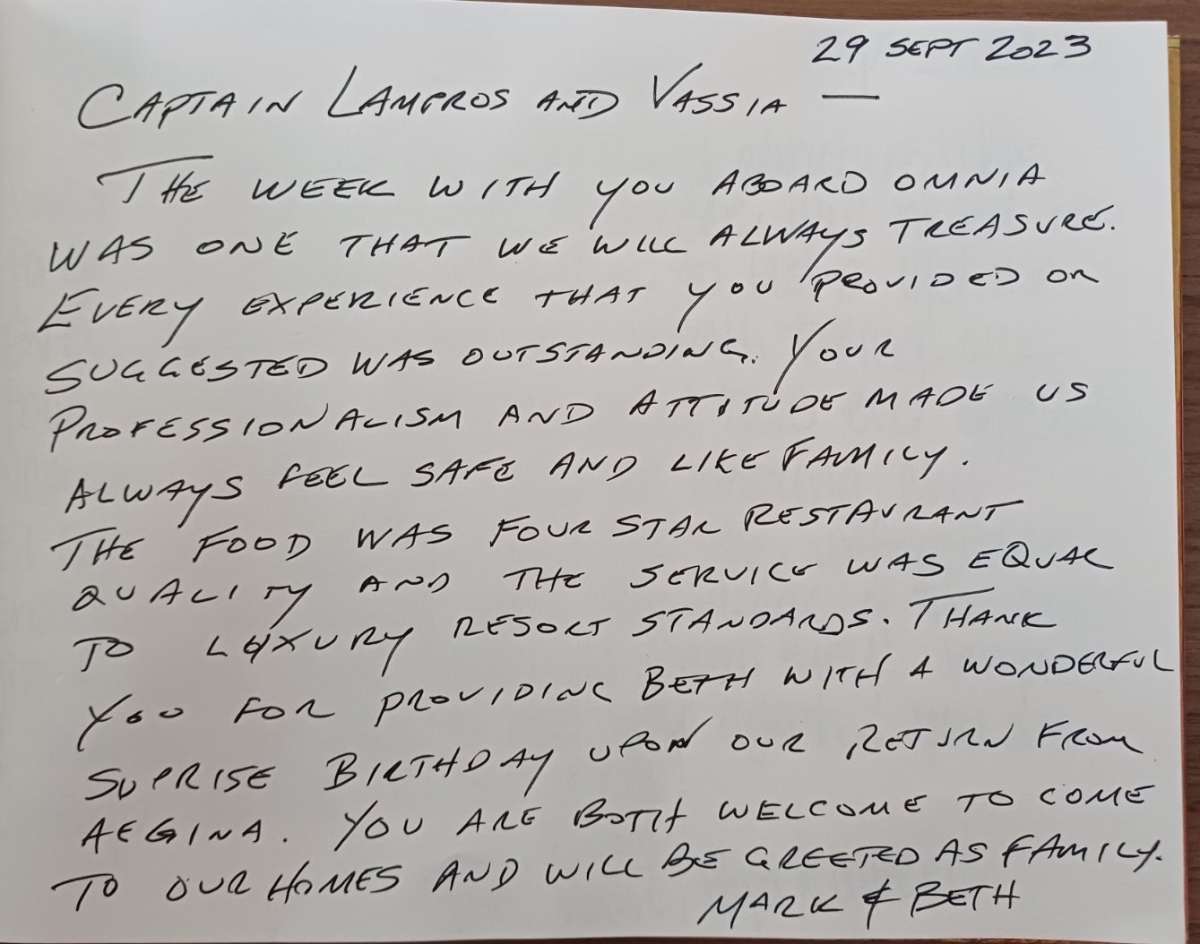 29 SEPT 2023
CAPTAIN LAMPROS AND VASSIA —
THE WEEK WITH YOU ABOARD OMNIA
WAS ONE THAT WE WILL ALWAYS TREASURE.
EVERY EXPERIENCE THAT YOU PROVIDED OR
SUGGESTED WAS OUTSTANDING. YOUR
PROFESSIONALISM AND ATTITUDE MADE US
ALWAYS FEEL SAFE AND LIKE FAMILY.
THE FOOD WAS FOUR STAR RESTAURANT
QUALITY AND THE SERVICE WAS EQUAL
TO LUXURY RESORT STANDARDS. THANK
YOU FOR PROVIDING BETH WITH A WONDERFUL
SUPRISE BIRTHDAY UPON OUR RETURN FROM
AEGINA. YOU ARE BOTH WELCOME TO COME
TO OUR HOMES AND WILL BE GREETED AS FAMILY.
MARK & BETH